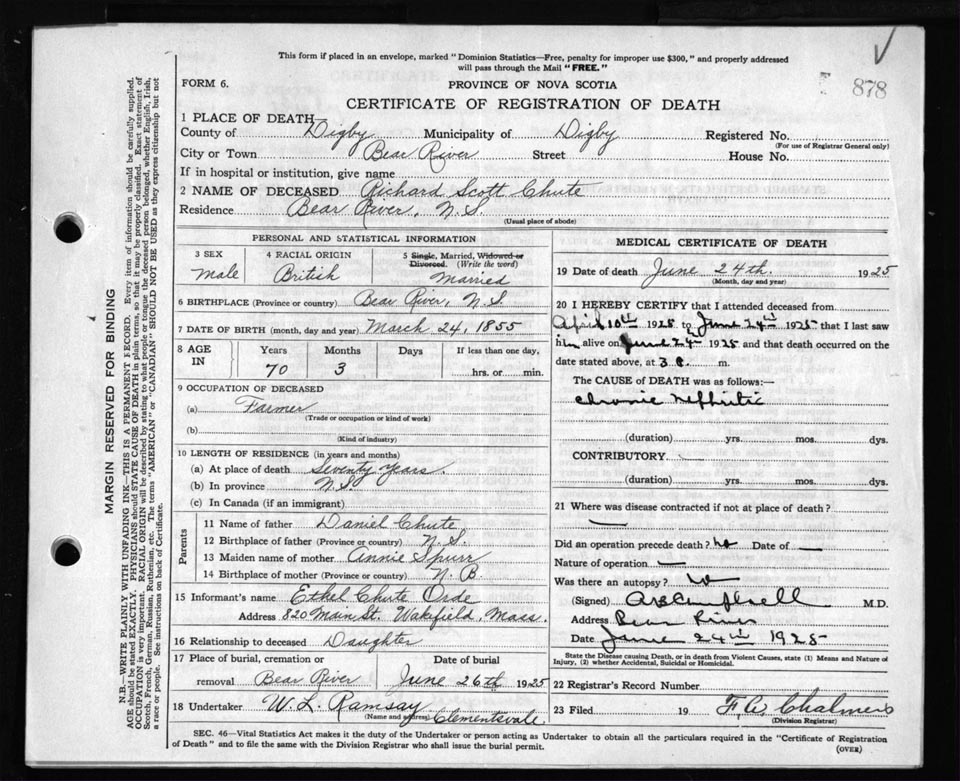 This form if placed in an envelope, marked "Dominion Statistics—Free, penalty for improper use $300," and properly addressed
will pass through the Mail "FREE."
878
FORM 6.
PROVINCE OF NOVA SCOTIA
CERTIFICATE OF REGISTRATION OF DEATH
1 PLACE OF DEATH—
County of Digby Municipality of Digby Registered No.
(For use of Registrar General only)
City or Town Bear River Street House No.
If in hospital or institution, give name
2 NAME OF DECEASED Richard Scott Chute
Residence Bear River, N.S.
(Usual place of abode)
PERSONAL AND STATISTICAL INFORMATION
3 SEX 4 RACIAL ORIGIN 5 Single, Married, Widowed or
Divorced. (Write the word)
Male British Married
6 BIRTHPLACE (Province or country) Bear River, N.S.
7 DATE OF BIRTH (month, day and year) March 24, 1855
8 AGE IN Years Months Days If less than one day,
70 3 hrs. or min.
9 OCCUPATION OF DECEASED
(a) Farmer
(Trade or occupation or kind of work)
(b)
(Kind of industry)
10 LENGTH OF RESIDENCE (in years and months)
(a) At place of death Seventy years.
(b) In province N.S.
(c) In Canada (if an immigrant)
Parents
11 Name of father Daniel Chute
12 Birthplace of father (Province or country) N.S.
13 Maiden name of mother Annie Spurr
14 Birthplace of mother (Province or country) N.B.
15 Informant's name Ethel Chute Orde
Address 820 Main St. Wakefield, Mass.
16 Relationship to deceased Daughter
17 Place of burial, cremation or Date of burial
removal Bear River June 26th 1925
18 Undertaker W. L. Ramsay
(Name and address) Clementsvale
MEDICAL CERTIFICATE OF DEATH
19 Date of death June 24th. 1925
(Month, day and year)
20 I HEREBY CERTIFY that I attended deceased from
April 10th 1925 to June 24th 1925 that I last saw
him alive on June 24th 1925 and that death occurred on the
date stated above, at 3 m.
The CAUSE OF DEATH was as follows:—
Chronic Nephritic
(duration) yrs. mos. dys.
CONTRIBUTORY
(duration) yrs. mos. dys.
21 Where was disease contracted if not at place of death?
—
Did an operation precede death? No Date of —
Nature of operation —
Was there an autopsy? No
(Signed) Campbell M.D.
Address Bear River
Date June 24th 1925
State the Disease causing Death, or in death from Violent Causes, state (1) Means and Nature of
Injury, (2) whether Accidental, Suicidal or Homicidal.
22 Registrar's Record Number
23 Filed 19 Chalmers
(Division Registrar)
SEC. 46—Vital Statistics Act makes it the duty of the Undertaker or person acting as Undertaker to obtain all the particulars required in the "Certificate of Registration
of Death" and to file the same with the Division Registrar who shall issue the burial permit.
(OVER)
MARGIN RESERVED FOR BINDING
N.B.—WRITE PLAINLY WITH UNFADING INK—THIS IS A PERMANENT RECORD. Every item of information should be carefully supplied.
AGE should be stated EXACTLY. PHYSICIANS should STATE CAUSE OF DEATH in plain terms, so that it may be properly classified. Exact statement of
OCCUPATION is very important. RACIAL ORIGIN will be described by stating to what people or tongue the deceased person belonged, whether English, Irish,
Scotch, French, German, Russian, Ruthenian, etc. The terms "AMERICAN" or "CANADIAN" SHOULD NOT BE USED as they express citizenship but not
a race or people. See instructions on back of Certificate.